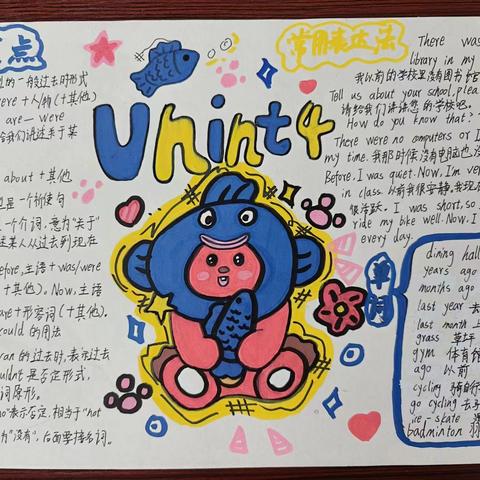 点
的一般过去时形式
ere + 人/物 (+其他)
are — were
给我们讲述关于某
about + 其他
也是一个祈使句
一个介词,意为"关于"
述某人从过去到现在
efore, 主语 + was/were
(+其他). Now, 主语
are + 形容词 (+其他).
could 的用法
an 的过去时,表示过去
uldnt 是否定形式,
词原形。
no"表示否定,相当于"not
为"没有", 后面要接名词。
Unint4
常用表达法
There was
library in my
我以前的学校里没有图书馆
Tell us about your school, plea
请给我们讲讲您的学校吧。
How do you know that?
There were no computers or I
my time. 我那时候没有电脑也没
Before, I was quiet. Now, I'm ve
in class. 以前我很安静。我现在
很活跃。 I was short, so
ride my bike well. Now, I
every day.
单词
dining hall
years ago
months ago
last year 去
last month 上
grass 草坪
gym 体育馆
ago 以前
cycling 骑自行
go cycling 去
ice-skate
badminton 羽